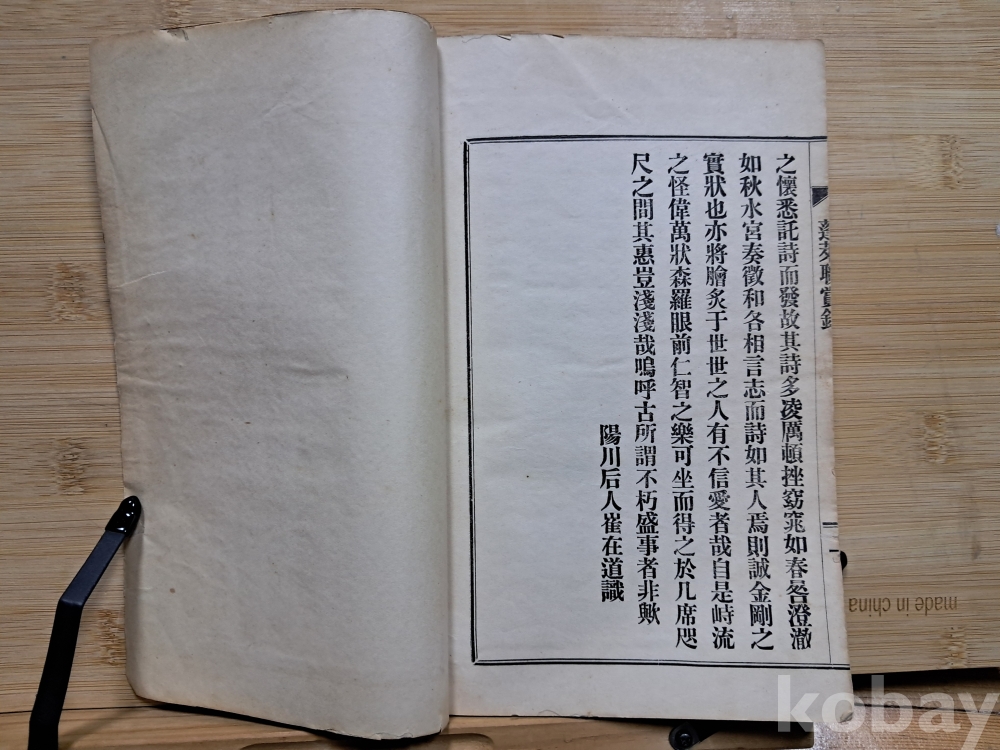 蓬萊聯賞錄
之懷悉託詩而發故其詩多凌厲頓挫窈窕如春澄澈
如秋水宮奏徵和各相言志而詩如其人焉則誠金剛之
實狀也亦將膾炙于世世之人有不信愛者哉自是峙流
之怪偉萬狀森羅眼前仁智之樂可坐而得之於几席咫
尺之間其惠豈淺淺哉嗚呼古所謂不朽盛事者非歟
陽川后人崔在道識
made in china
kobay